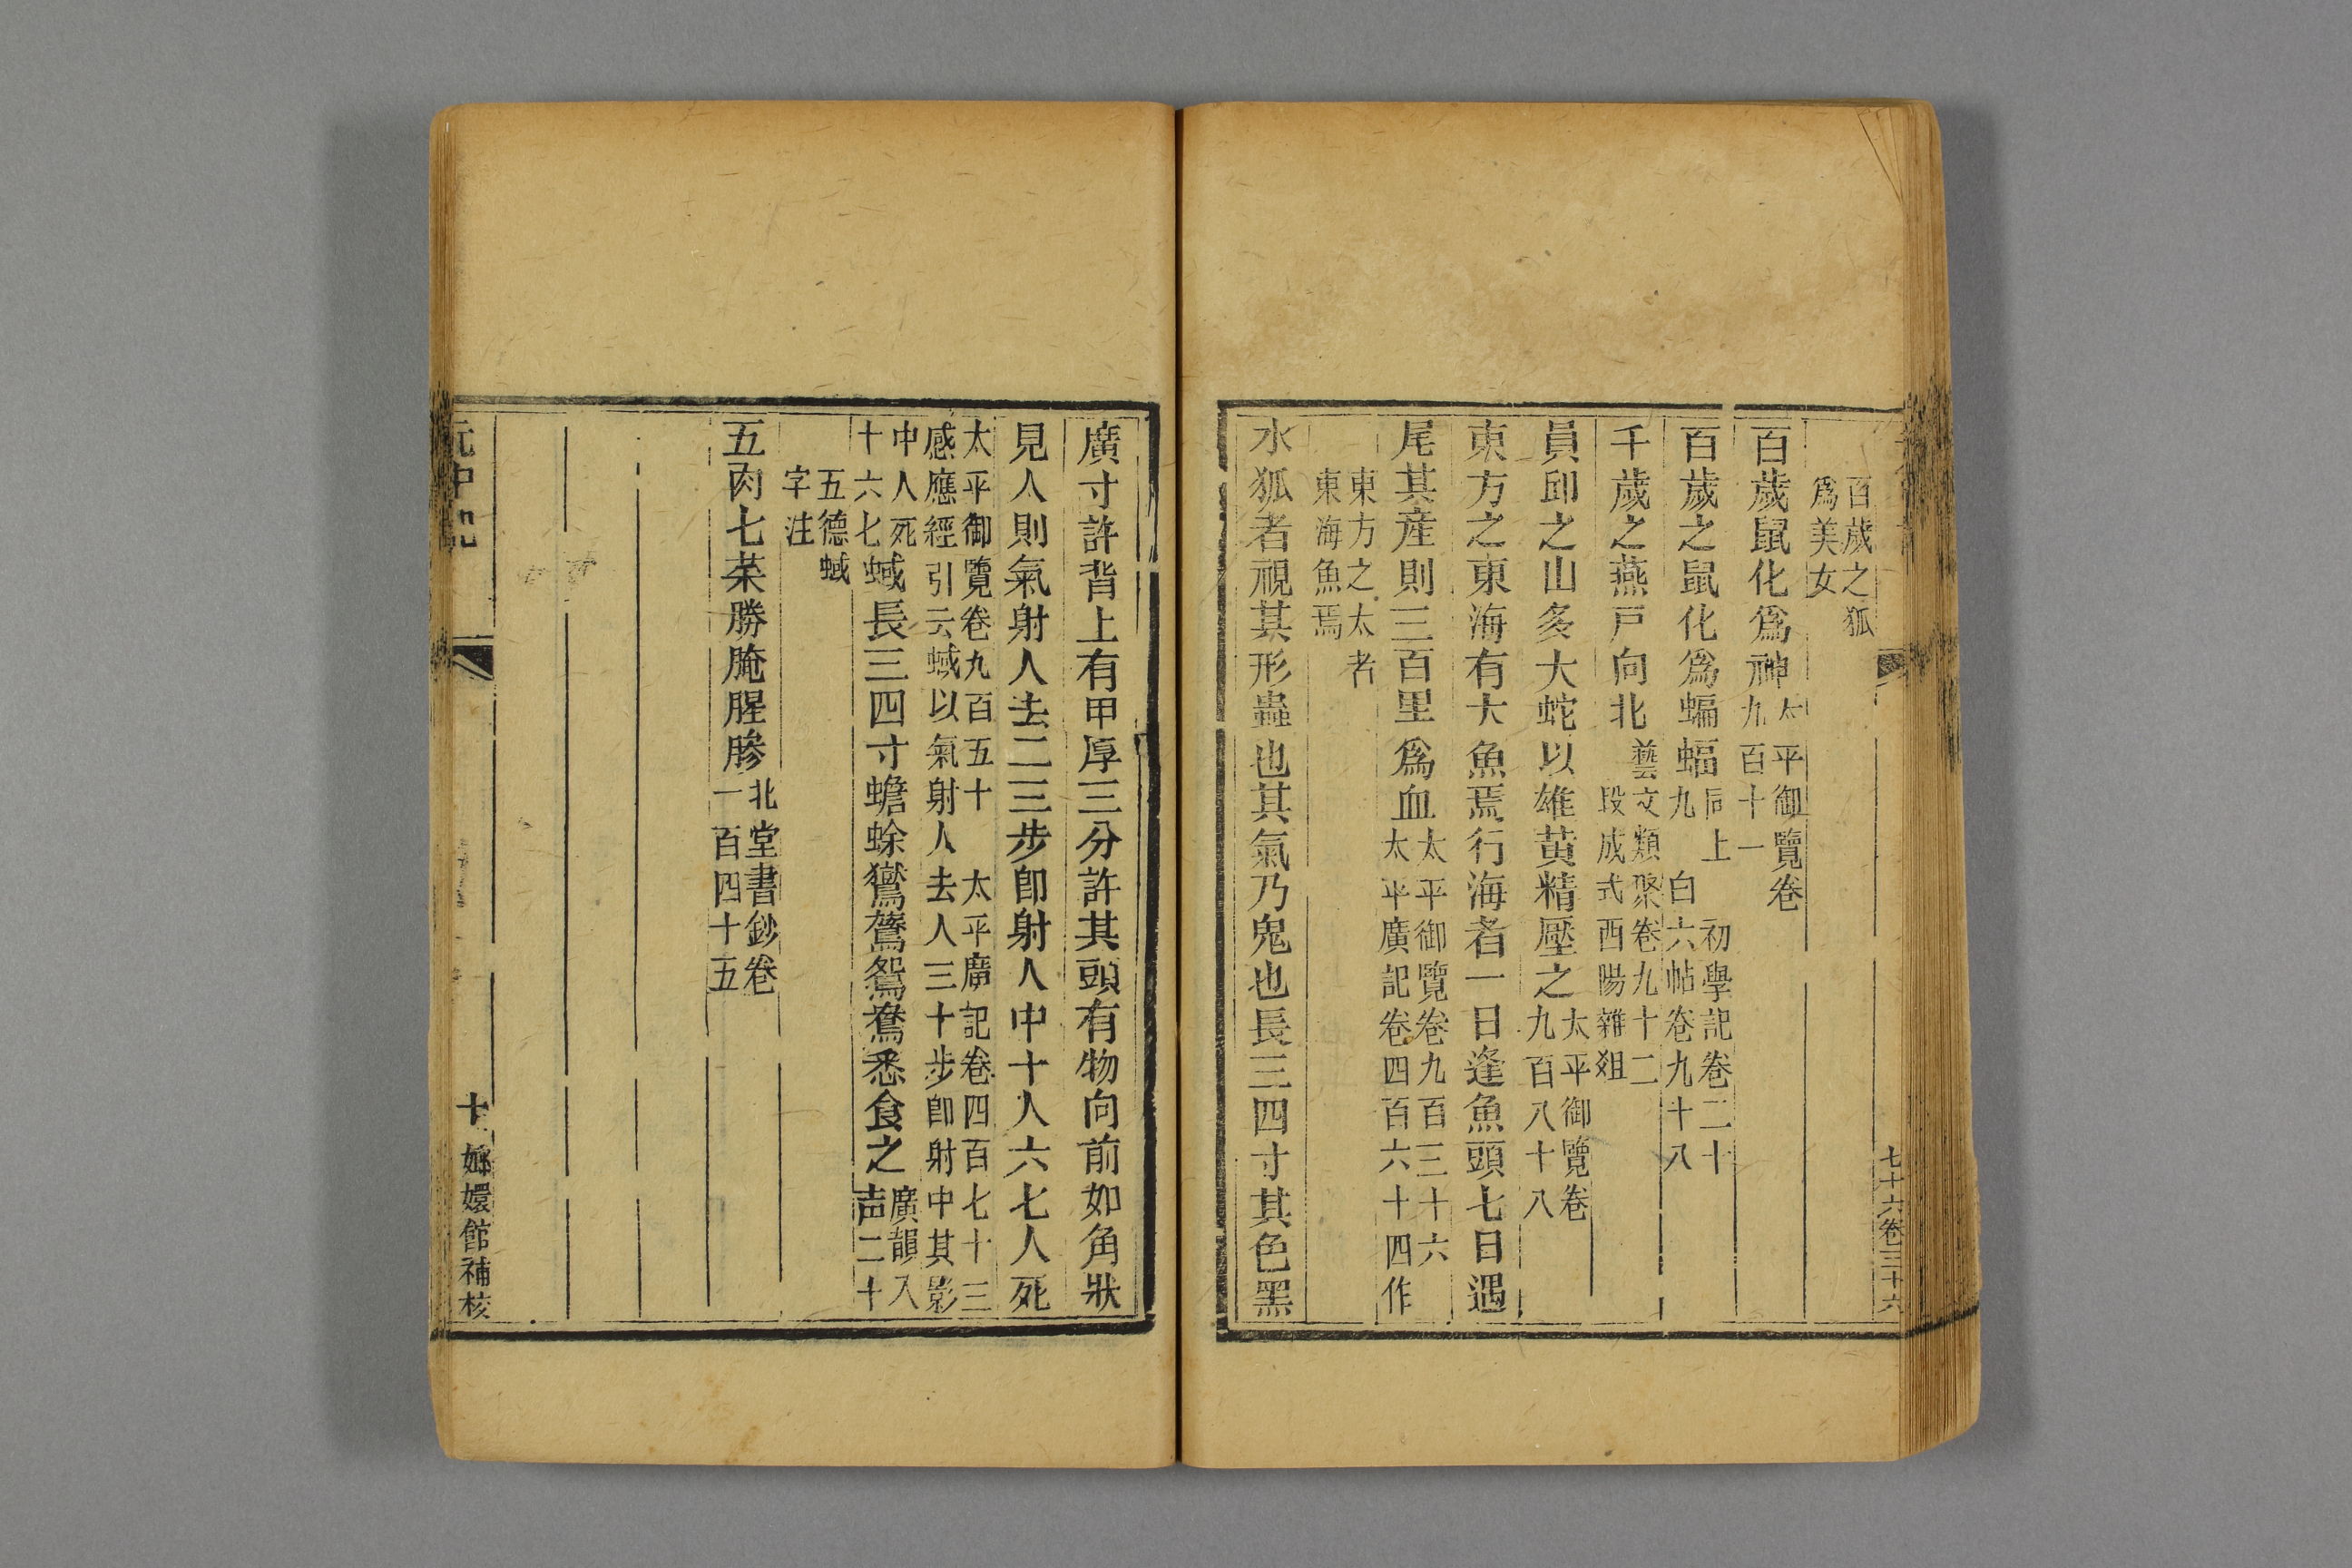 百歲之狐
爲美女
百歲鼠化爲神太平御覽卷
九百十一
百歲之鼠化爲蝙蝠同上 初學記卷二十
九 白六帖卷九十八
千歲之燕戸向北藝文類聚卷九十二
段成式西陽雜俎
員邱之山多大蛇以雄黄精壓之太平御覽卷
九百八十八
東方之東海有大魚焉行海者一日逢魚頭七日遇
尾其産則三百里爲血太平御覽卷九百三十六
太平廣記卷四百六十四作
東方之太者
東海魚焉
水狐者視其形蟲也其氣乃鬼也長三四寸其色黑
七十六卷三十六
廣寸許背上有甲厚三分許其頭有物向前如角狀
見人則氣射人去二三步卽射人中十人六七人死
太平御覽卷九百五十 太平廣記卷四百七十三
感應經引云蜮以氣射人去人三十步卽射中其影
中人死
十六七蜮長三四寸蟾蜍鸑鷟鴛鴦悉食之廣韻入
声二十
五德蜮
字注
五肉七菜勝腌腥膯北堂書鈔卷
一百四十五
元中記
十
嫏嬛館補校